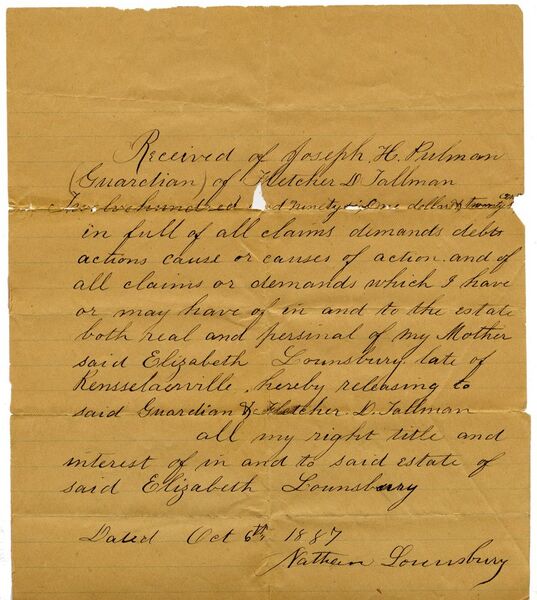 Received of Joseph H. Pulman
(Guardian) of Fletcher D Tallman
Twelve hundred and Ninety nine dollars & twenty
in full of all claims demands debts
actions cause or causes of action and of
all claims or demands which I have
or may have of in and to the estate
both real and persinal of my Mother
said Elizabeth Lounsbury late of
Rensselaerville, hereby releasing to
said Guardian & Fletcher. D. Tallman
all my right title and
interest of in and to said estate of
said Elizabeth Lounsbury
Dated Oct 6th 1887
Nathan Lounsbury